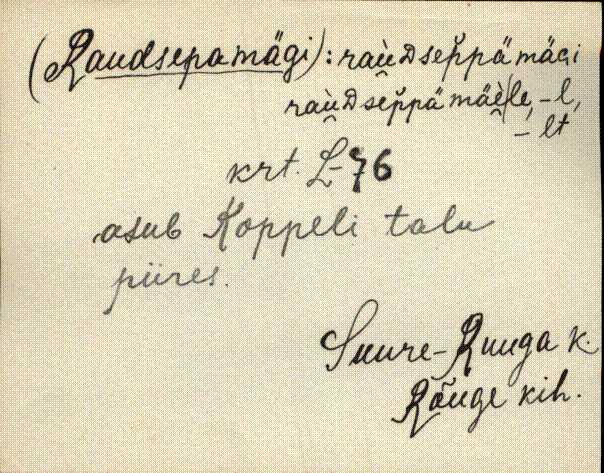 (Raudsepamägi): raùDsĕppämäGi
raùDsĕppämäè|le, -l,
-lt
krt. L-76
asub Koppeli talu
piires.
Suure-Ruuga k.
Rõuge kih.